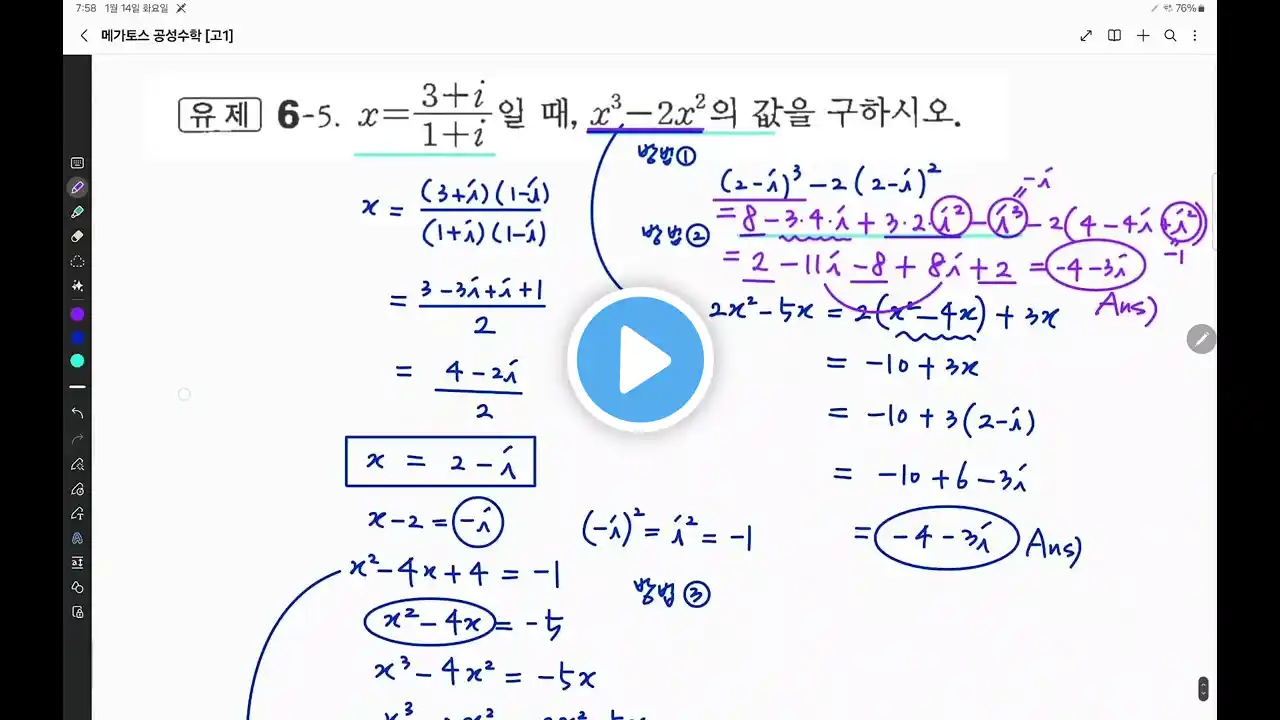 7:58 1월 14일 화요일
76%
메가토스 공성수학 [고1]
유 제 6-5. x=\frac{3+i}{1+i}일 때, x³-2x²의 값을 구하시오.
방법①
(2-i)³-2(2-i)²
-i
x = \frac{(3+i)(1-i)}{(1+i)(1-i)}
방법②
= 8-3·4·i+3·2·i²-i³-2(4-4i+i²)
-1
= 2-11i-8+8i+2 = -4-3i
Ans)
= \frac{3-3i+i+1}{2}
2x²-5x = 2(x²-4x)+3x
= -10+3x
= \frac{4-2i}{2}
= -10+3(2-i)
x = 2-i
= -10+6-3i
x-2 = -i
(-i)² = i² = -1
= -4-3i Ans)
x²-4x+4 = -1
방법③
x²-4x = -5
x³-4x² = -5x